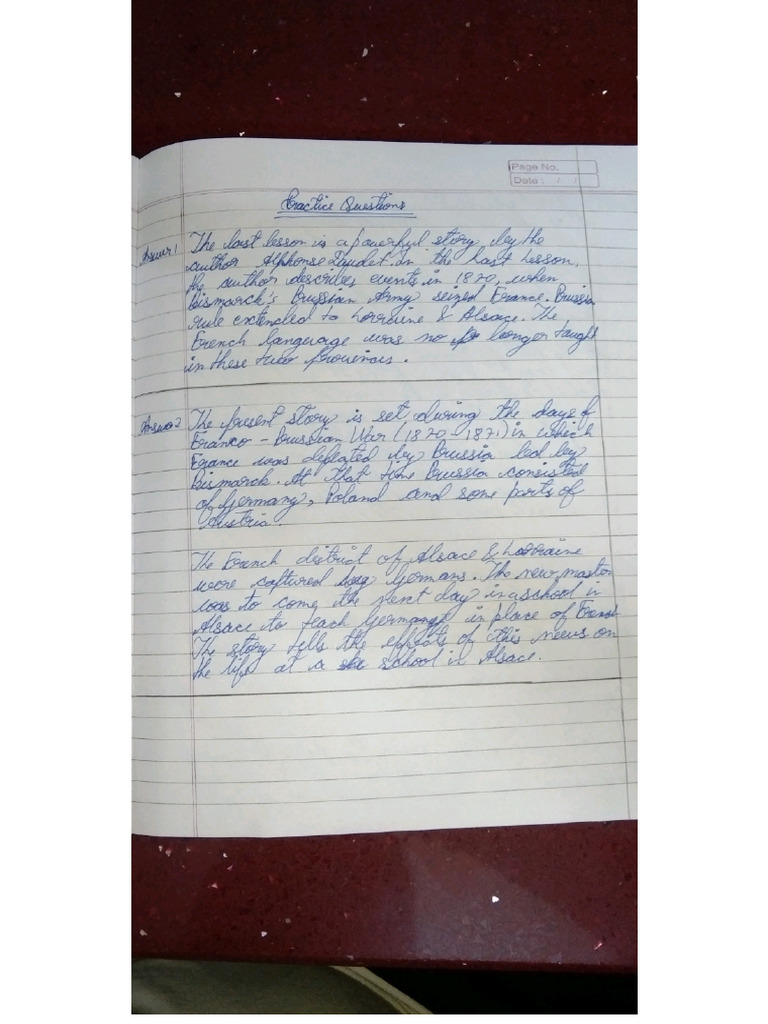 Page No.
Date : / /
Practice Questions
Answer 1 The last lesson is a powerful story by the
author Alphonse Daudet. In the Last Lesson,
the author describes events in 1870, when
Bismarck's Prussian Army seized France. Prussian
rule extended to Lorraine & Alsace. The
French language was no longer taught
in these two provinces.
Answer 2 The present story is set during the days of
Franco - Prussian War (1870-1871) in which
France was defeated by Prussia led by
Bismarck. At that time Prussia consisted
of Germany, Poland and some parts of
Austria.
The French district of Alsace & Lorraine
were captured by Germans. The new master
was to come the next day in a school in
Alsace to teach in place of French
The story tells the effects of this news on
the life at a school in Alsace.